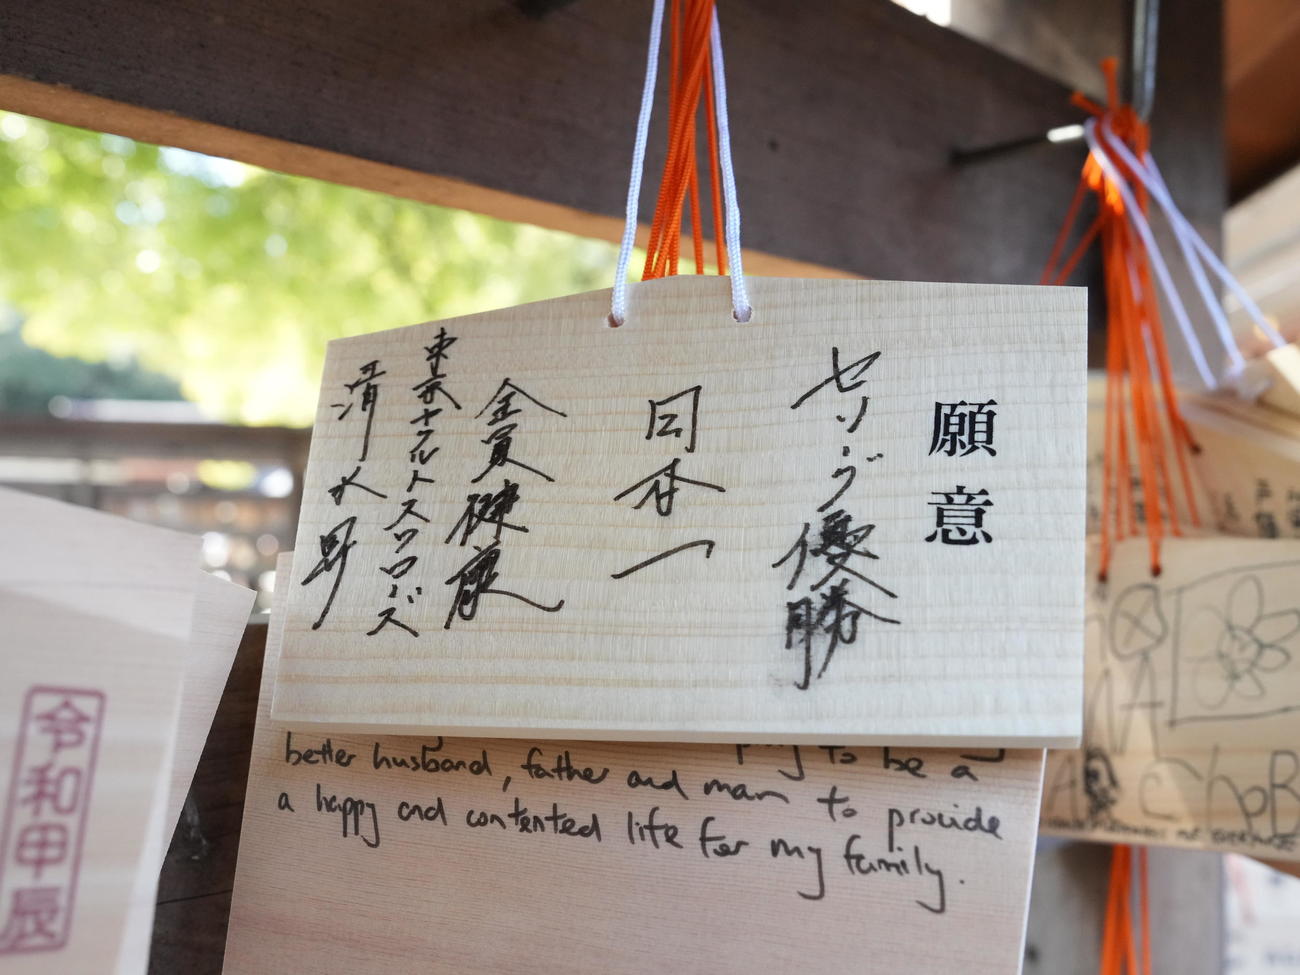 願意
セ・リーグ優勝
日本一
全員健康
東京ヤクルトスワローズ
清水昇
to be a
better husband, father and man to provide
a happy and contented life for my family.
令和甲辰